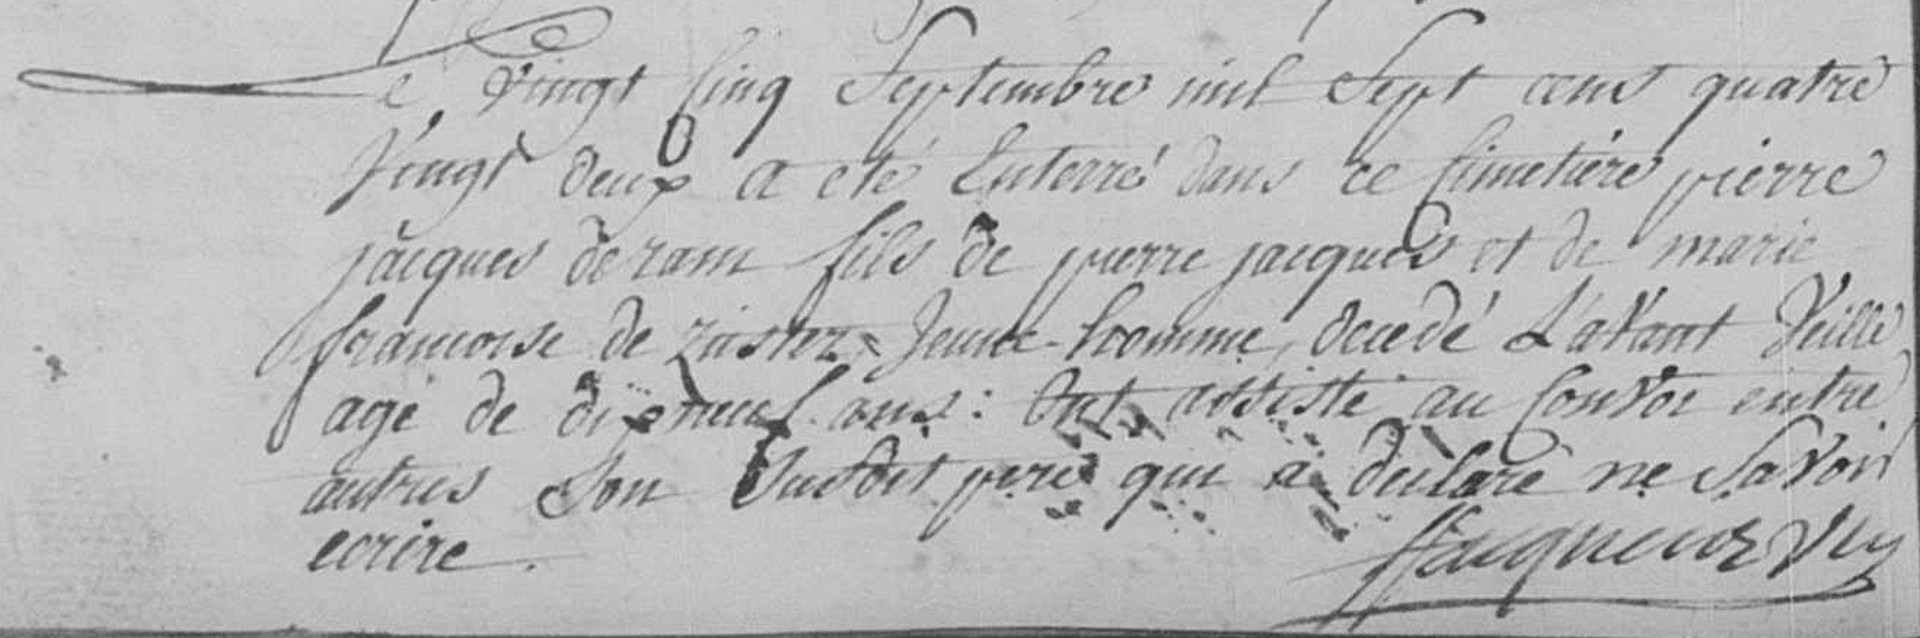 Le vingt cinq Septembre mil Sept cens quatre
vingt deux a été Enterré dans ce Cimetiére pierre
jacques deram fils de pierre jacques et de marie
francoise de zuster, Jeune homme, decedé L'avant veille
agé de dixneuf ans : Ont assisté au Convoi entre
autres Son Susdit pere qui a declaré ne Savoir
ecrire.